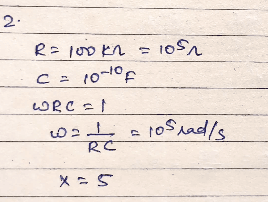 2.
R = 100 kΩ = 10⁵Ω
C = 10⁻¹⁰F
ωRC = 1
ω = 1/RC = 10⁵ rad/s
x = 5